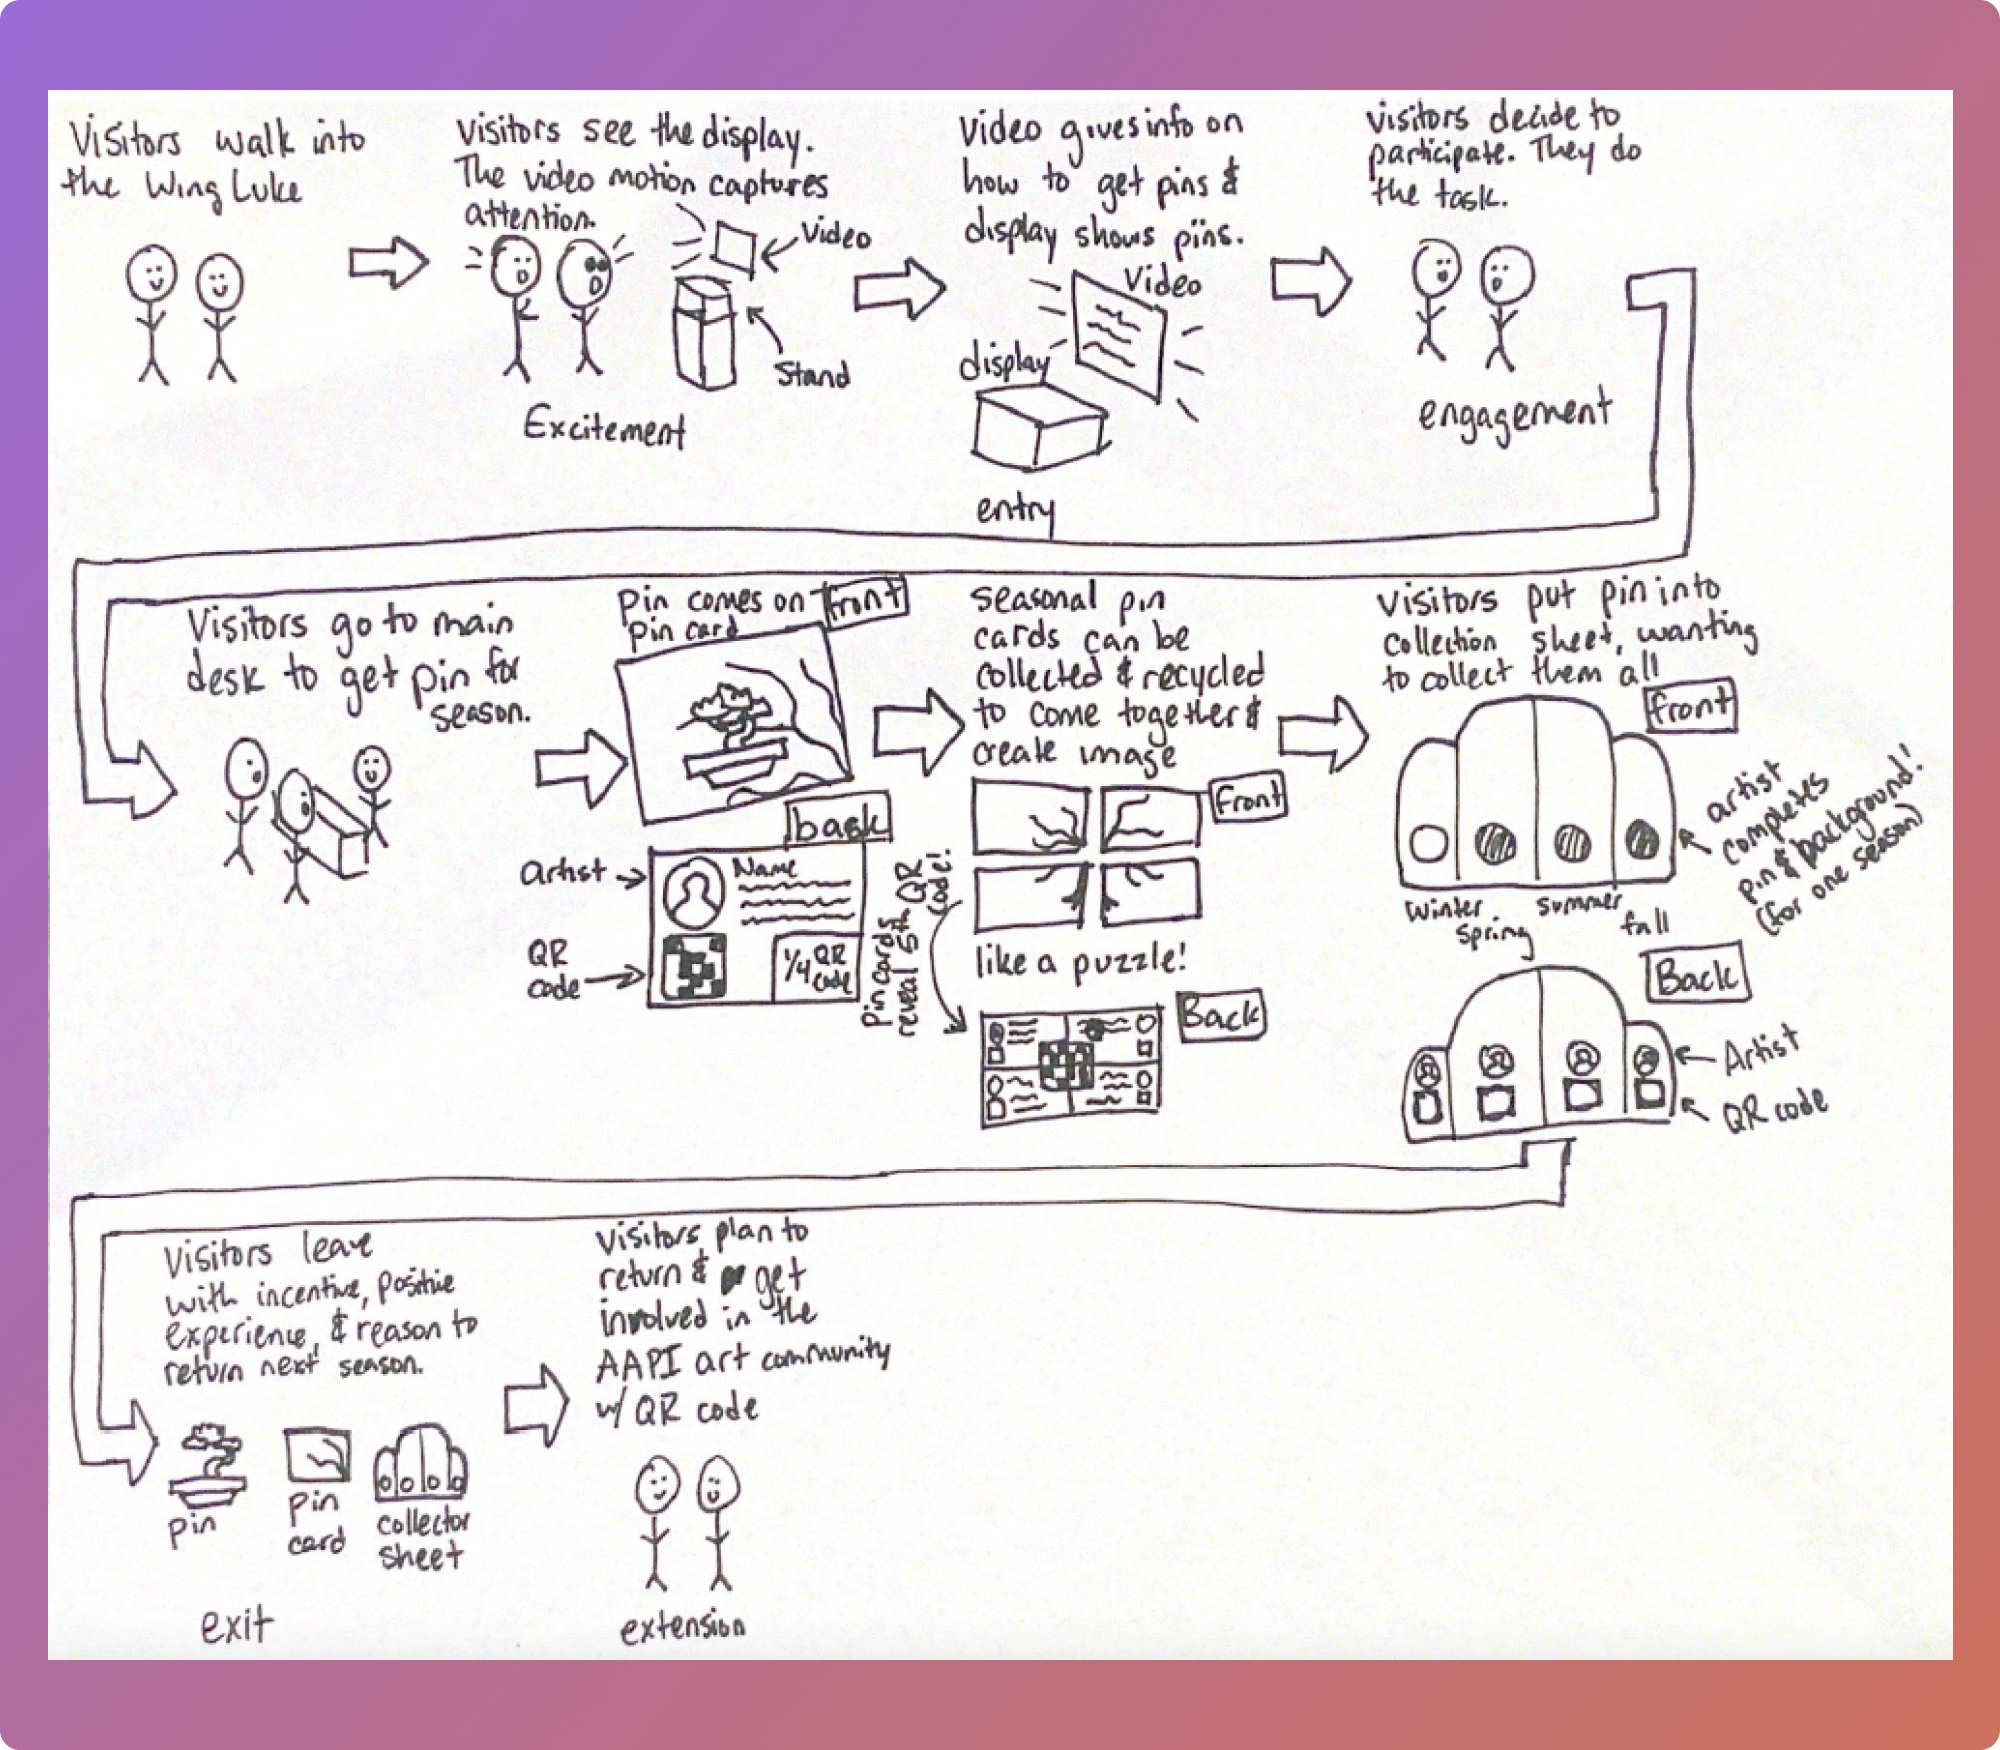 Visitors walk into
the Wing Luke
Visitors see the display.
The video motion captures
attention.
Video
Stand
Excitement
Video gives info on
how to get pins &
display shows pins.
Video
display
entry
visitors decide to
participate. They do
the task.
engagement
Visitors go to main
desk to get pin for
season.
pin comes on
pin card
front
back
artist
Name
QR
code
1/4 QR
code
seasonal pin
cards can be
collected & recycled
to come together &
create image
front
like a puzzle!
Pin cards
reveal 5th QR
code!
Back
Visitors put pin into
collection sheet, wanting
to collect them all
front
artist
completes
pin & background!
(for one season)
winter
spring
summer
fall
Back
Artist
QR code
Visitors leave
with incentive, positive
experience, & reason to
return next season.
pin
pin
card
collector
sheet
exit
Visitors plan to
return & get
involved in the
AAPI art community
w/ QR code
extension